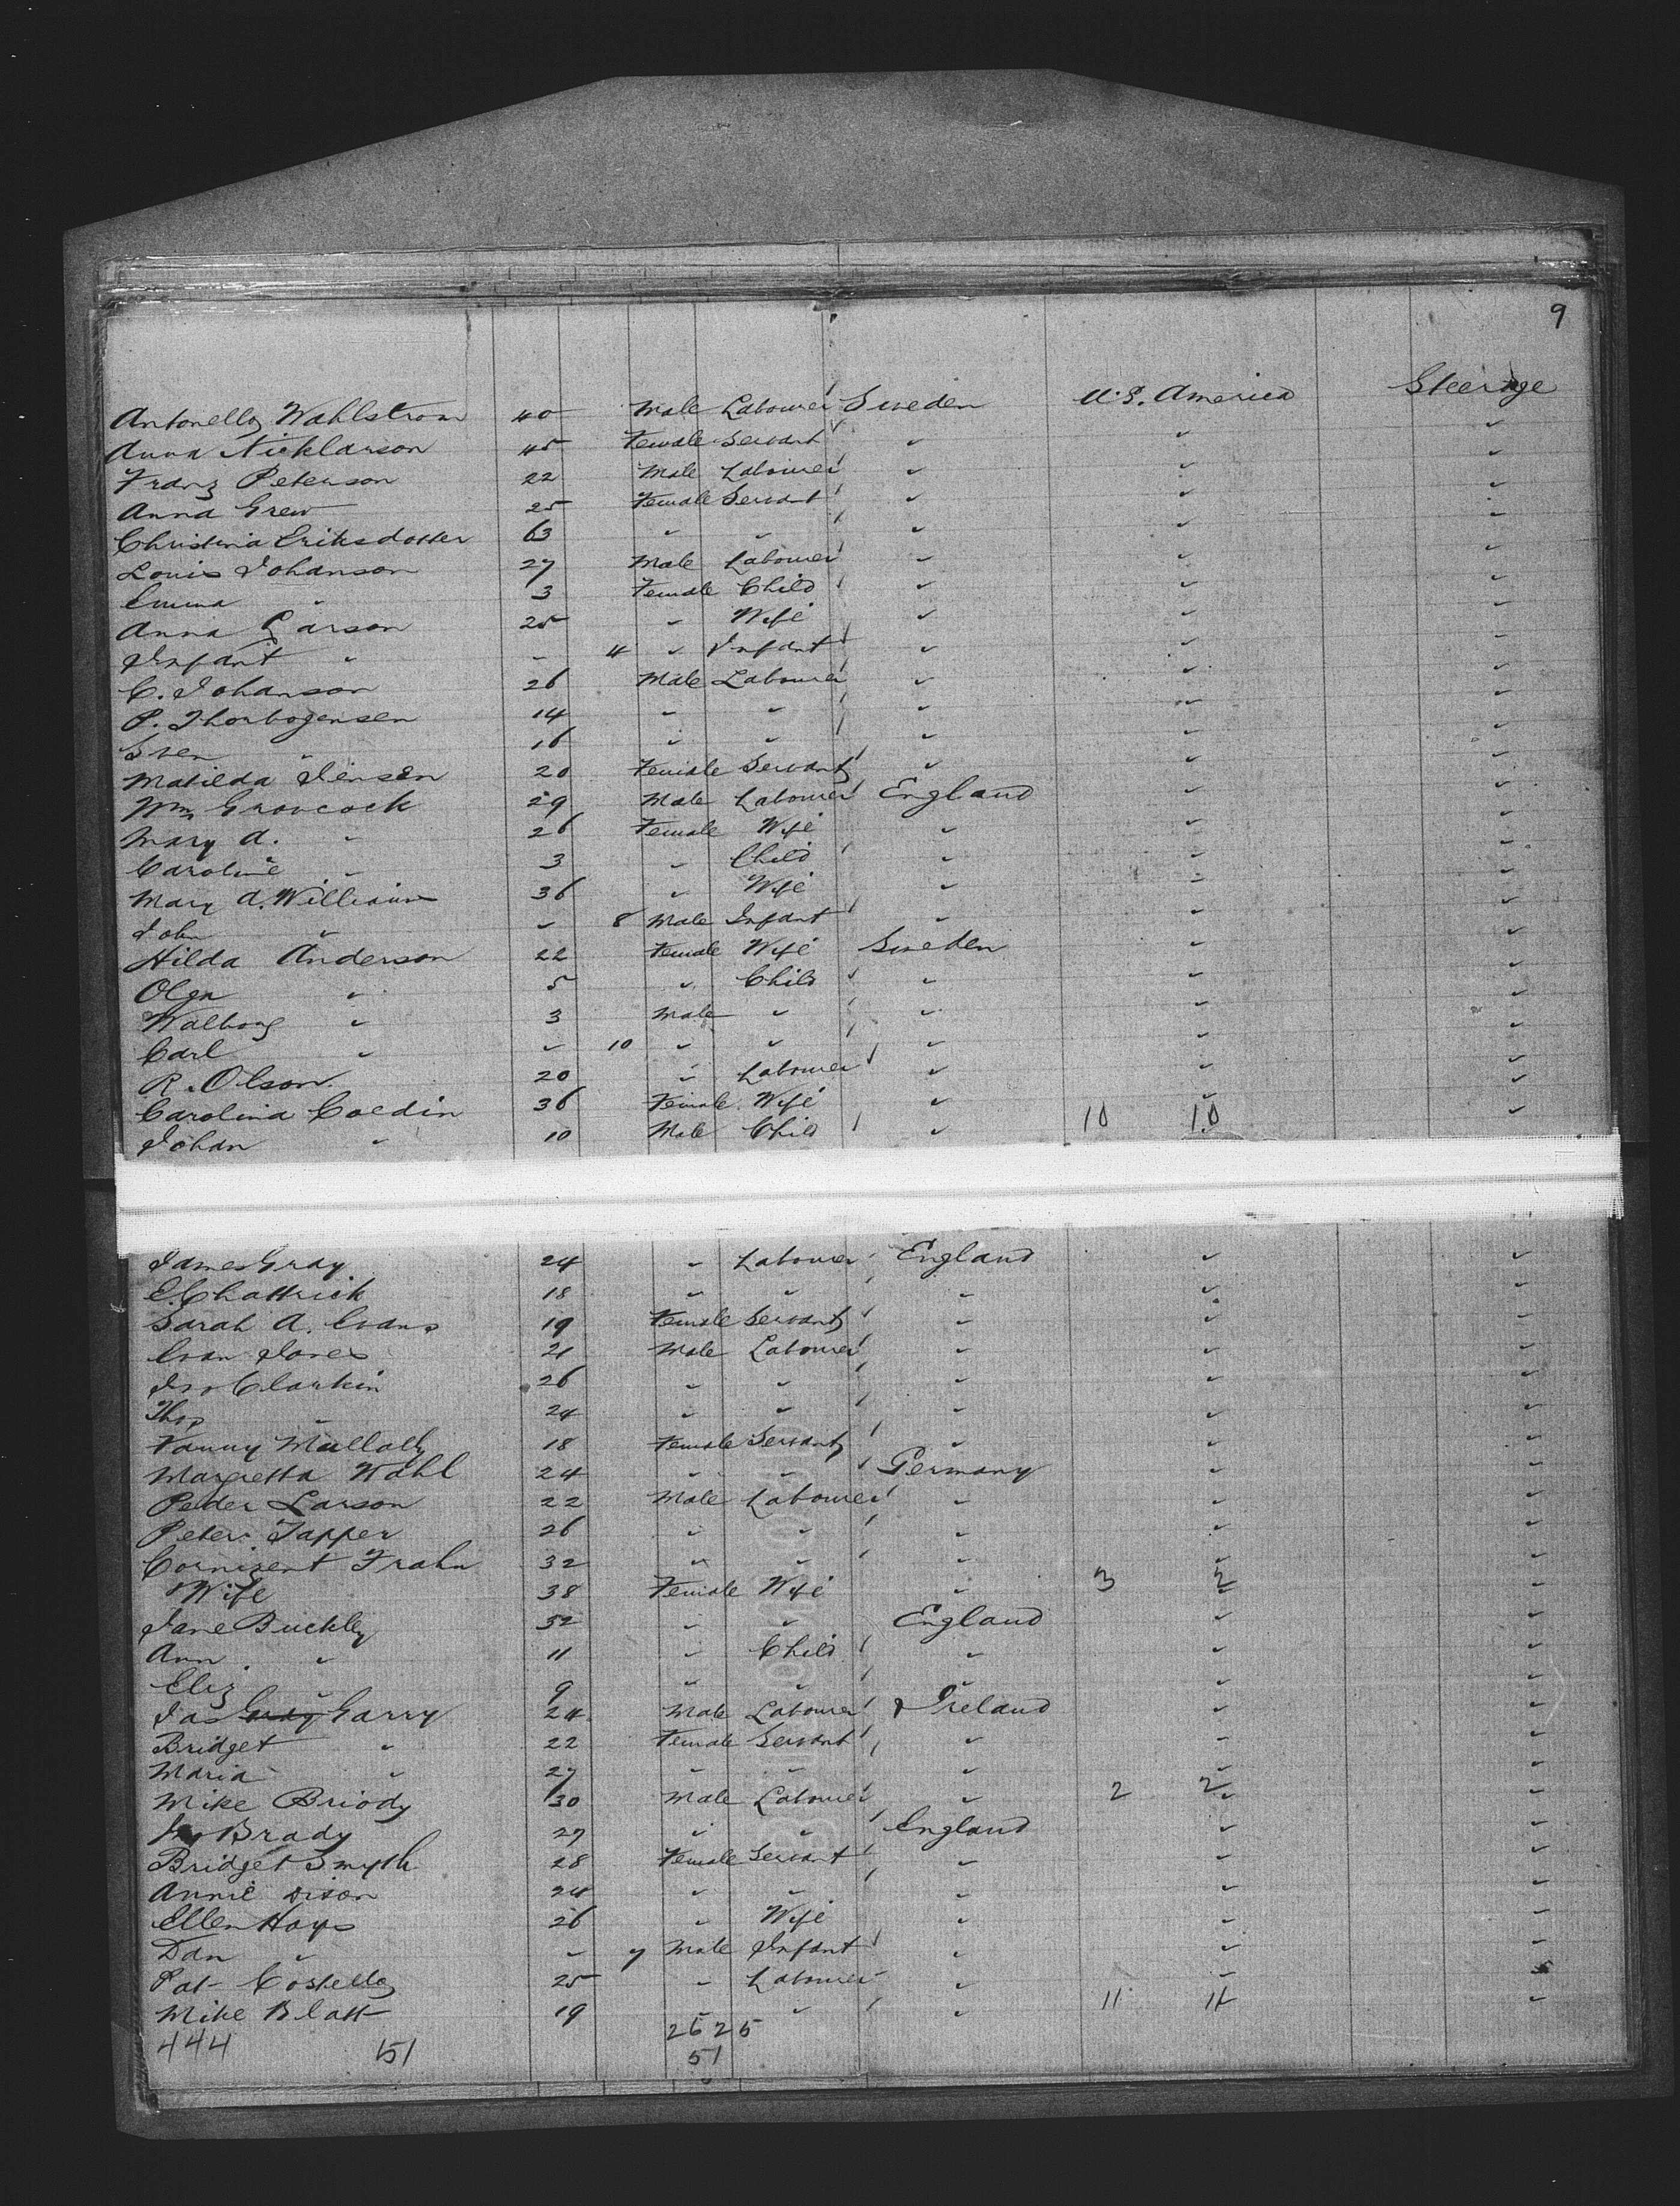 9
Antonello Wahlstrom 40 Male Labourer Sweden U.S. America Steerage
Anna Nicklarson 45 Female Servant " " "
Franz Peterson 22 Male Labourer " " "
Anna Grew 25 Female Servant " " "
Christina Eriksdotter 63 " " " " "
Louis Johanson 27 Male Labourer " " "
Emma " 3 Female Child " " "
Anna Larson 25 " Wife " " "
Infant " - 4 " Infant " " "
C. Johanson 26 Male Labourer " " "
P. Thorbogensen 14 " " " " "
Sven " 16 " " " " "
Matilda Jensen 20 Female Servant " " "
Wm Grovcock 29 Male Labourer England " "
Mary A. " 26 Female Wife " " "
Caroline " 3 " Child " " "
Mary A. Williams 36 " Wife " " "
John " - 8 Male Infant " " "
Hilda Anderson 22 Female Wife Sweden " "
Olga " 5 " Child " " "
Walborg " 3 Male " " " "
Carl " - 10 " " " " "
R. Olson 20 " Labourer " " "
Carolina Coedin 36 Female Wife " " "
Johan " 10 Male Child " 10 10 "
James Gray 24 " Labourer England " "
E. Chattrick 18 " " " " "
Sarah A. Evans 19 Female Servant " " "
Evan Jones 21 Male Labourer " " "
Jno Clarkin 26 " " " " "
Thos " 24 " " " " "
Fanny Mullally 18 Female Servant " " "
Margretta Wahl 24 " " Germany " "
Peder Larson 22 Male Labourer " " "
Peter Tapper 26 " " " " "
Cornizent Frahn 32 " " " " "
" Wife 38 Female Wife " 3 3 "
Jane Buckley 32 " " England " "
Ann " 11 " Child " " "
Eliz " 9 " " " " "
Jas Gray Garry 24 Male Labourer Ireland " "
Bridget " 22 Female Servant " " "
Maria " 27 " " " " "
Mike Briody 30 Male Labourer " 2 2 "
Brady 27 " " England " "
Bridget Smyth 28 Female Servant " " "
Annie Dixon 24 " " " " "
Ellen Hays 26 " Wife " " "
Dan " - 7 Male Infant " " "
Pat Costello 25 " Labourer " " "
Mike Blatt 19 " " " 11 11 "
26 25
444 151 51